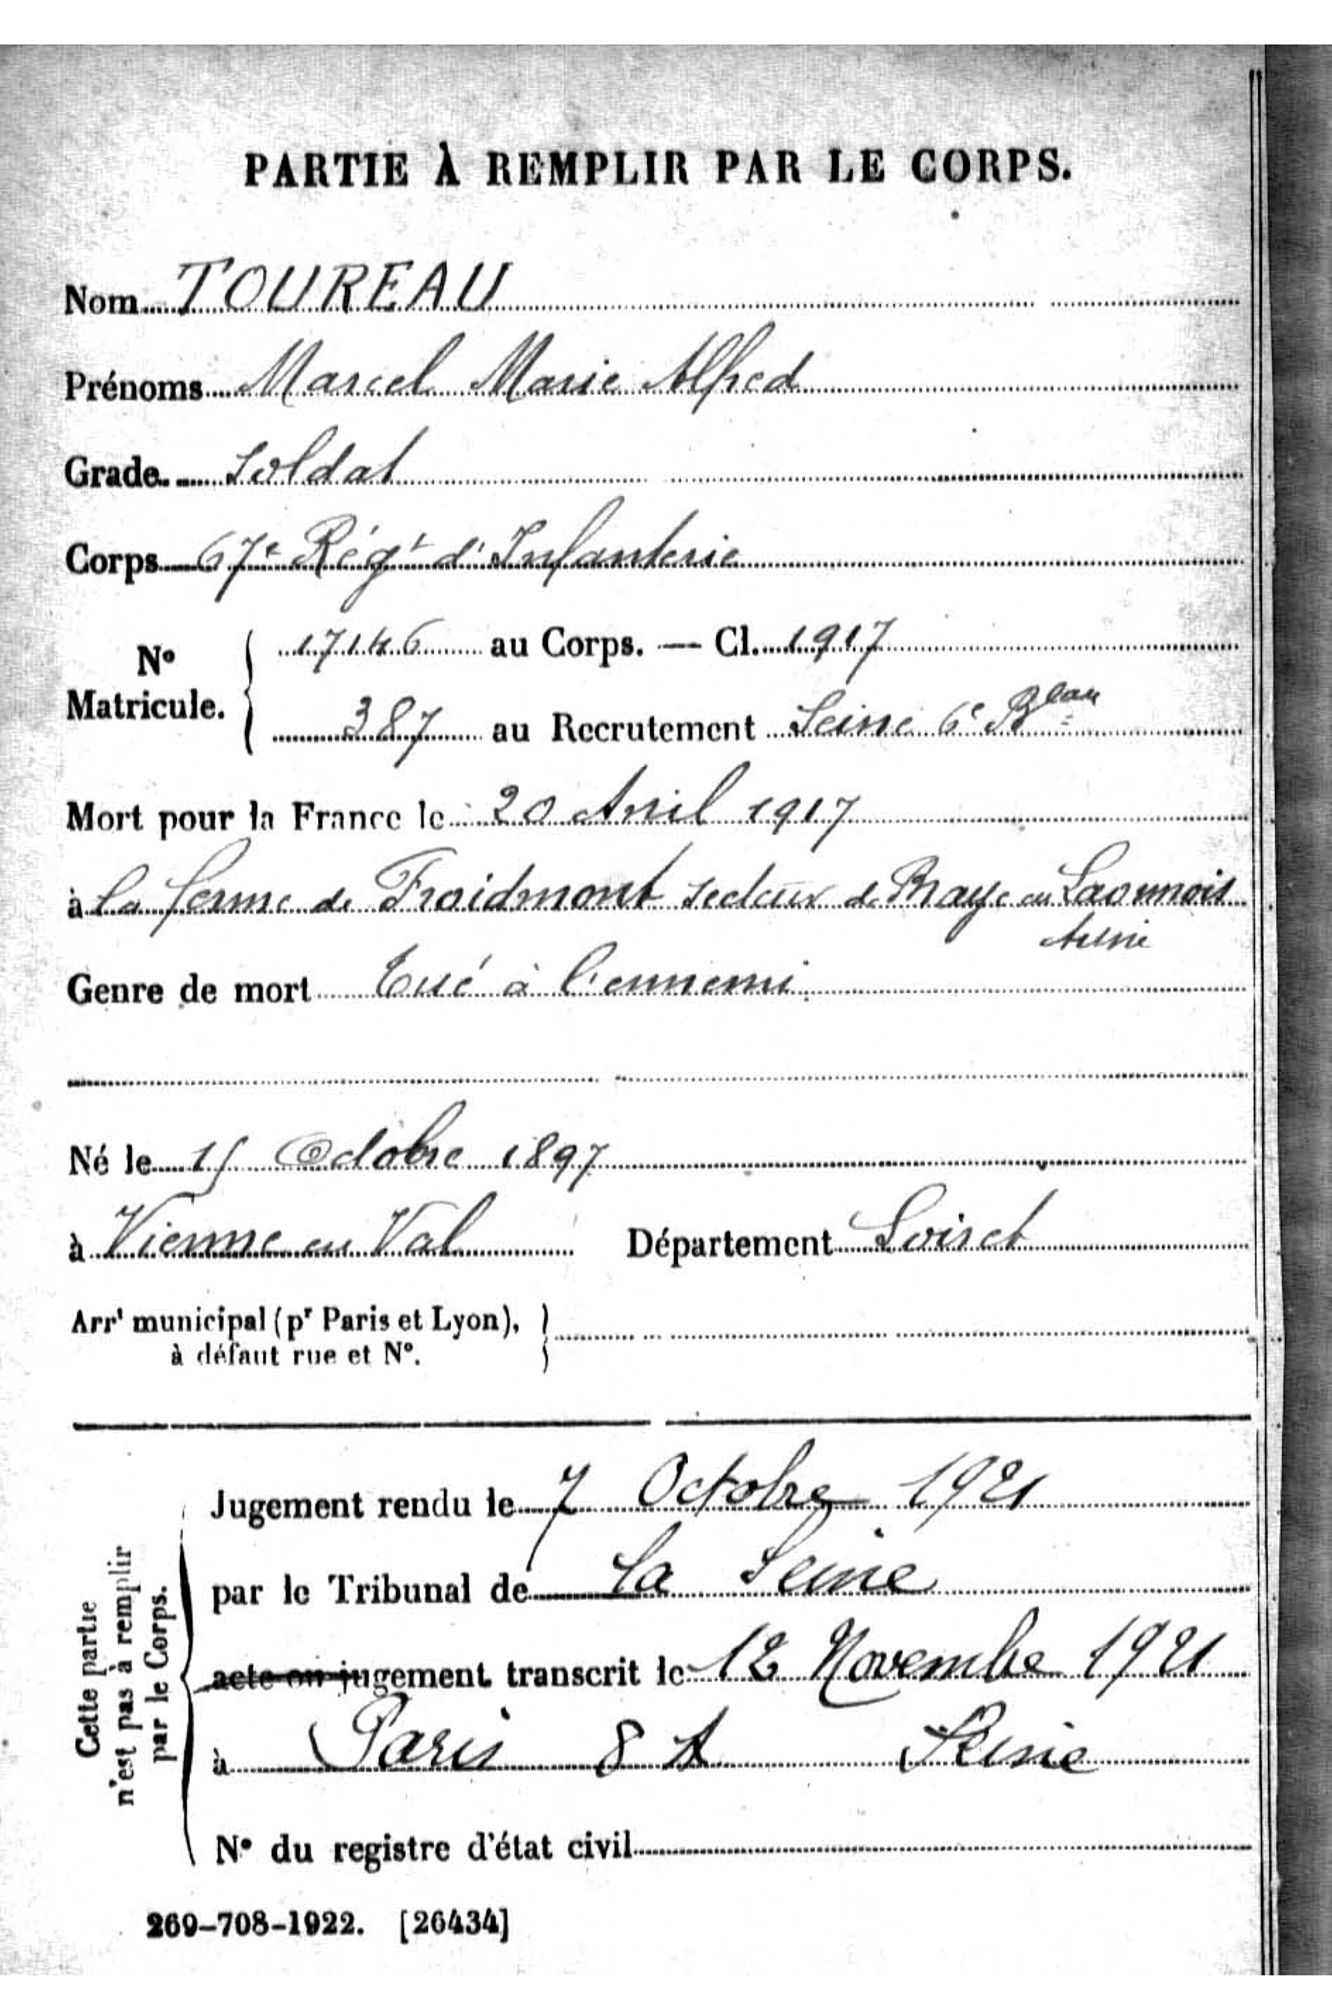 PARTIE À REMPLIR PAR LE CORPS.
Nom TOUREAU
Prénoms Marcel Marie Alfred
Grade Soldat
Corps 67e Régt d'Infanterie
N° Matricule. 17146 au Corps. — Cl. 1917
387 au Recrutement Seine 6e Bau
Mort pour la France le 20 Avril 1917
à la ferme de Froidmont secteur de Braye en Laonnois
Aisne
Genre de mort Tué à l'ennemi
Né le 15 Octobre 1897
à Vienne en Val Département Loiret
Arrt municipal (pr Paris et Lyon),
à défaut rue et N°.
Cette partie n'est pas à remplir par le Corps.
Jugement rendu le 7 Octobre 1921
par le Tribunal de la Seine
acte ou jugement transcrit le 12 Novembre 1921
à Paris 8 A Seine
N° du registre d'état civil
269-708-1922. [26434]